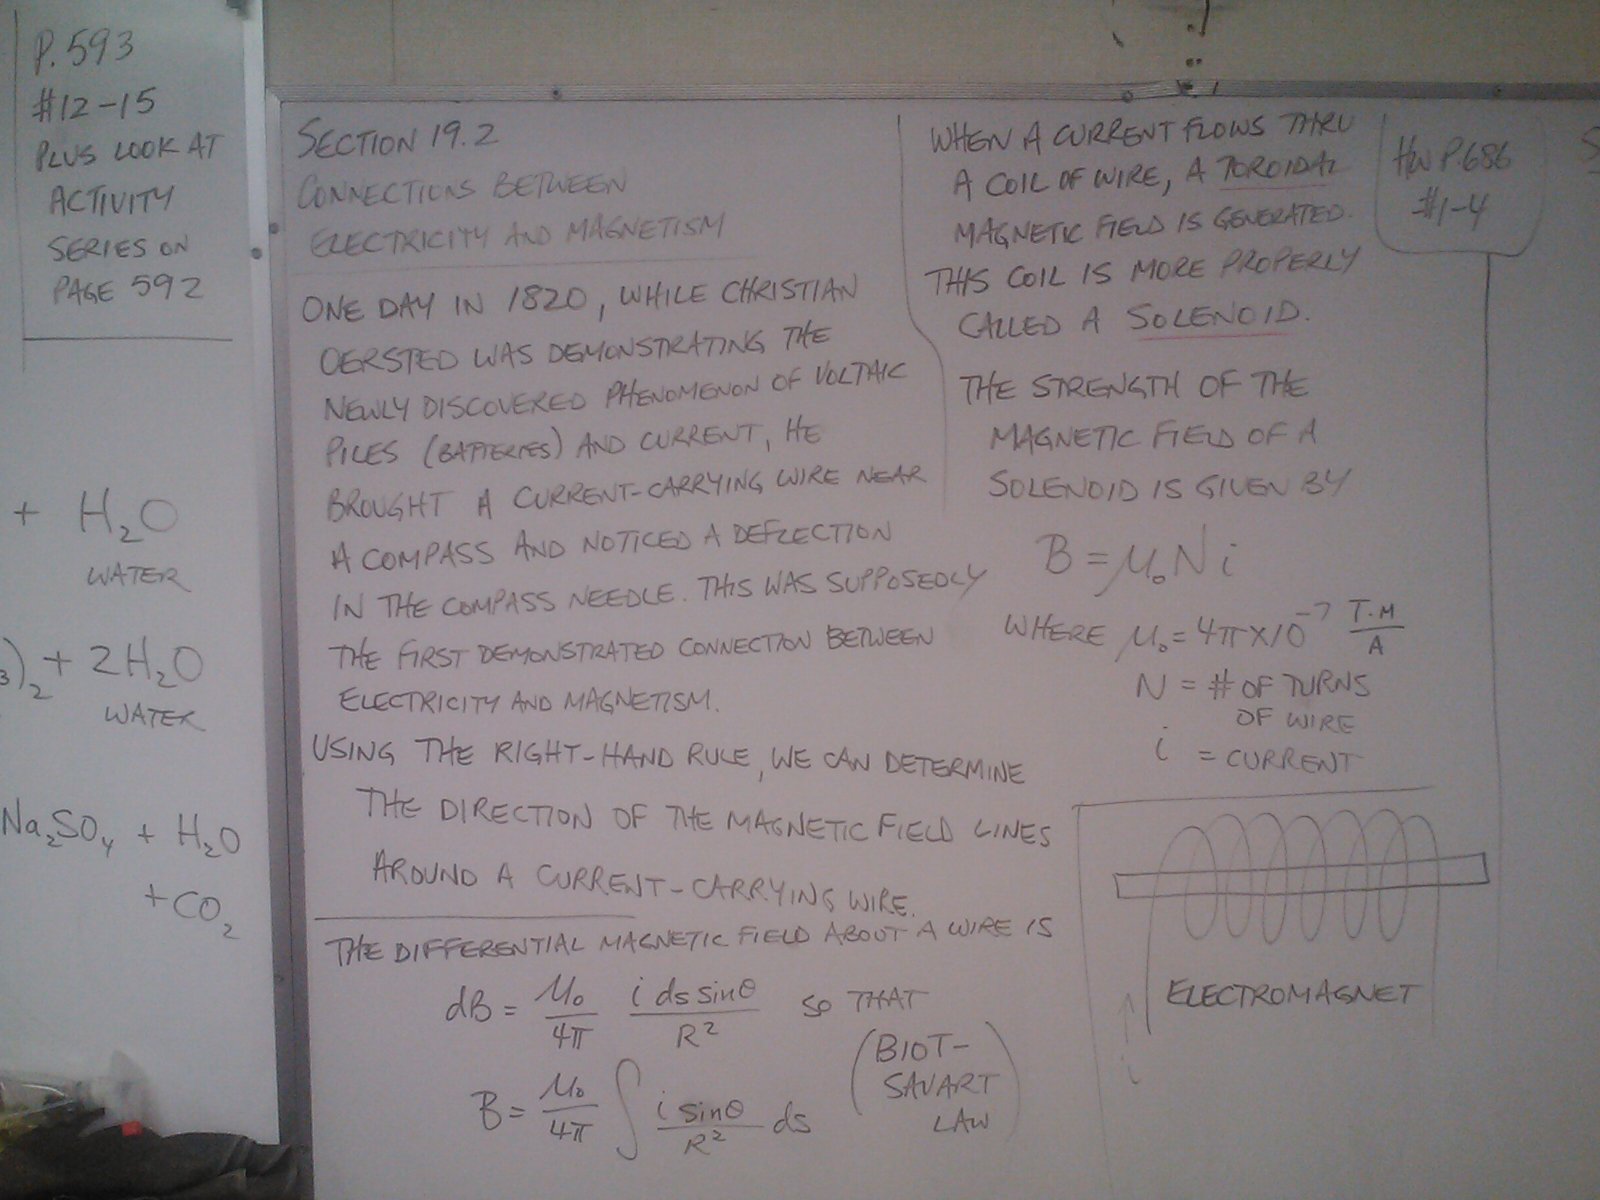 P.593
#12-15
PLUS LOOK AT
ACTIVITY
SERIES ON
PAGE 592
+ H₂O
WATER
₃)₂ + 2H₂O
WATER
Na₂SO₄ + H₂O
+ CO₂
SECTION 19.2
CONNECTIONS BETWEEN
ELECTRICITY AND MAGNETISM
ONE DAY IN 1820, WHILE CHRISTIAN
OERSTED WAS DEMONSTRATING THE
NEWLY DISCOVERED PHENOMENON OF VOLTAIC
PILES (BATTERIES) AND CURRENT, HE
BROUGHT A CURRENT-CARRYING WIRE NEAR
A COMPASS AND NOTICED A DEFLECTION
IN THE COMPASS NEEDLE. THIS WAS SUPPOSEDLY
THE FIRST DEMONSTRATED CONNECTION BETWEEN
ELECTRICITY AND MAGNETISM.
USING THE RIGHT-HAND RULE, WE CAN DETERMINE
THE DIRECTION OF THE MAGNETIC FIELD LINES
AROUND A CURRENT-CARRYING WIRE.
THE DIFFERENTIAL MAGNETIC FIELD ABOUT A WIRE IS
dB = μ₀/4π i ds sinθ/R² SO THAT
B = μ₀/4π ∫ i sinθ/R² ds
(BIOT-
SAVART
LAW)
WHEN A CURRENT FLOWS THRU
A COIL OF WIRE, A TOROIDAL
MAGNETIC FIELD IS GENERATED.
THIS COIL IS MORE PROPERLY
CALLED A SOLENOID.
THE STRENGTH OF THE
MAGNETIC FIELD OF A
SOLENOID IS GIVEN BY
B = μ₀Ni
WHERE μ₀ = 4π×10⁻⁷ T·M/A
N = # OF TURNS
OF WIRE
i = CURRENT
i
ELECTROMAGNET
HW P.686
#1-4